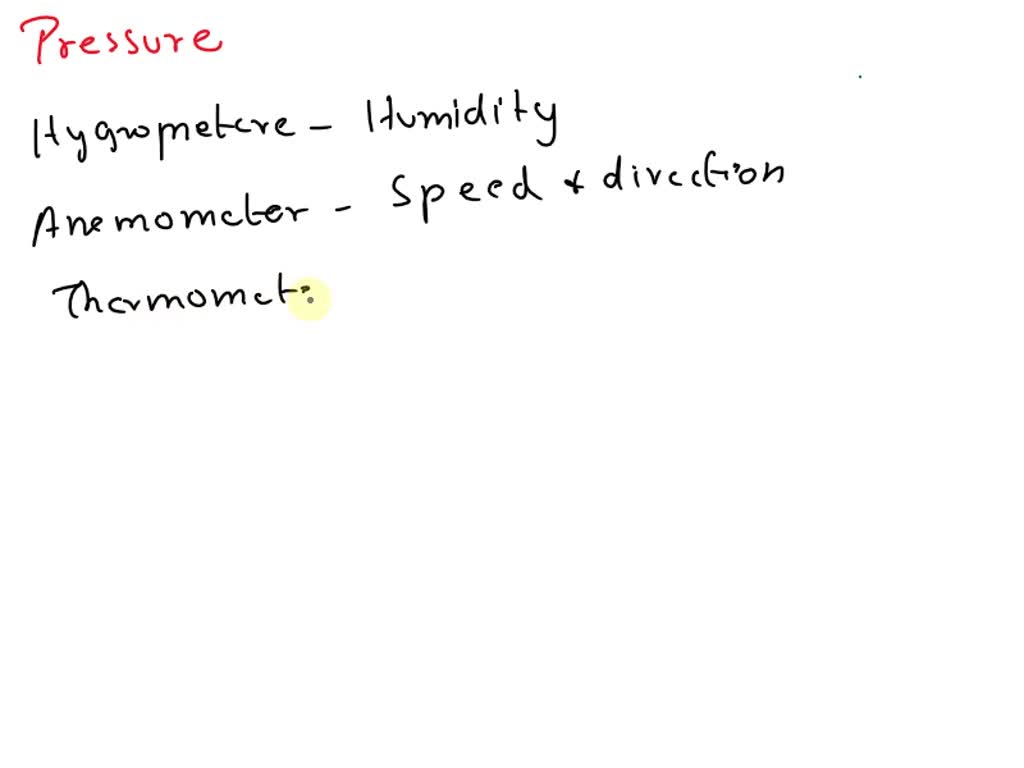 Pressure
Hygrometere - Humidity
Anemometer - Speed & direction
Thermomet